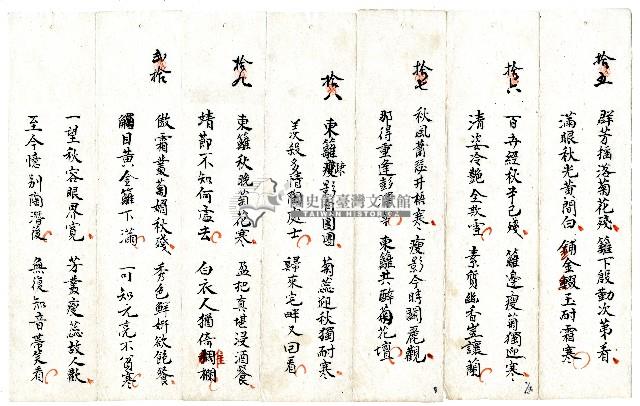 拾五
群芳搖落菊花殘 籬下殷勤次第看
滿眼秋光黃間白 鋪金綴玉耐霜寒
拾六
百卉經秋半已殘 籬邊瘦菊獨迎寒
清姿冷艷全欺雪 素質幽香豈讓蘭
拾七
秋風蕭瑟井梧寒 瘦影今時關麗觀
那得重逢彭 東籬共醉菊花壇
拾八
東籬疎影 團圞 菊蕊迎秋獨耐寒
羨殺多情 處士 歸來完畔又回看
拾九
東籬秋晚菊花寒 盈把真堪浸酒餐
靖節不知何處去 白衣人猶倚欄
貳拾
傲霜叢菊媚秋殘 秀色鮮妍欲飽餐
觸目黃金籬下滿 可知元亮不貧寒
一望秋容眼界寬 芳叢瘦蕊故人歡
至今憶別陶潛後 無復知音帶笑看
國史館臺灣文獻館
TAIWAN HISTORICA